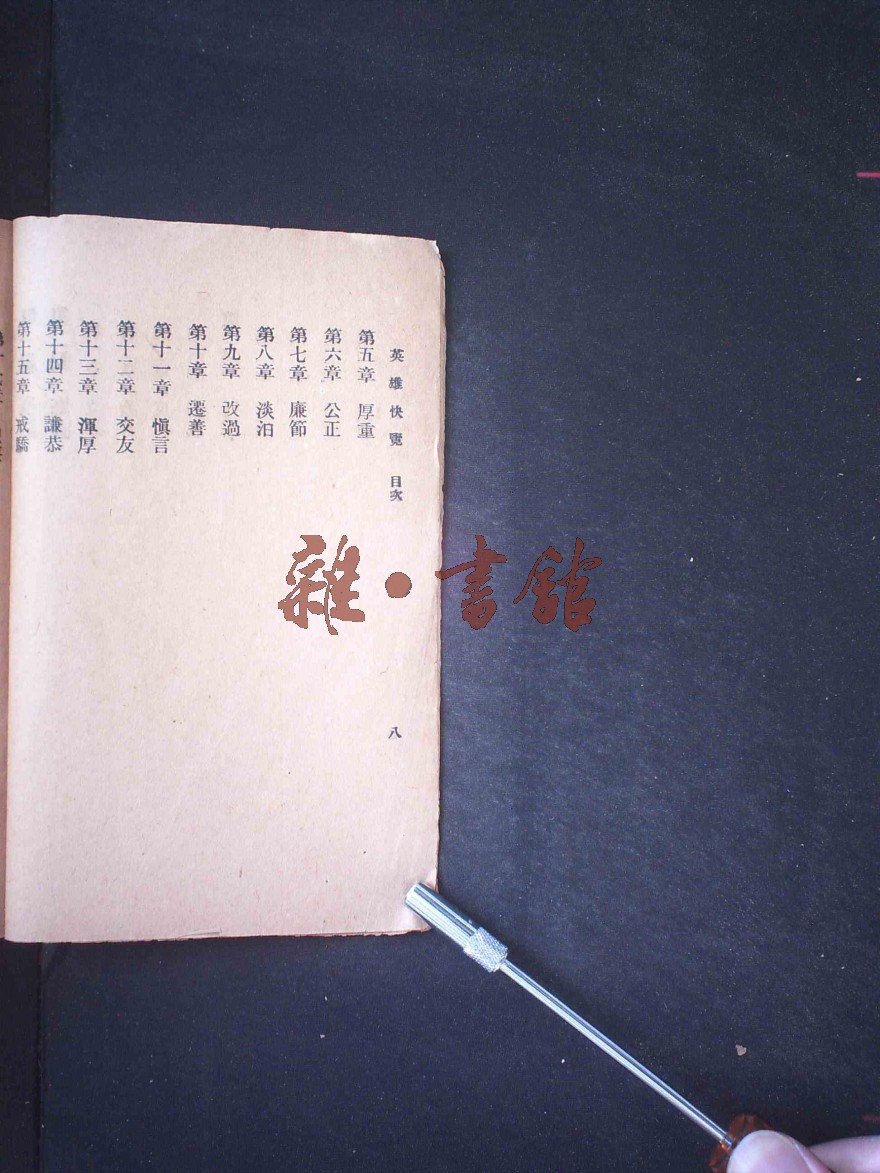 英雄快覽 目次
八
第五章 厚重
第六章 公正
第七章 廉節
第八章 淡泊
第九章 改過
第十章 遷善
第十一章 愼言
第十二章 交友
第十三章 渾厚
第十四章 謙恭
第十五章 戒驕
雜·書館